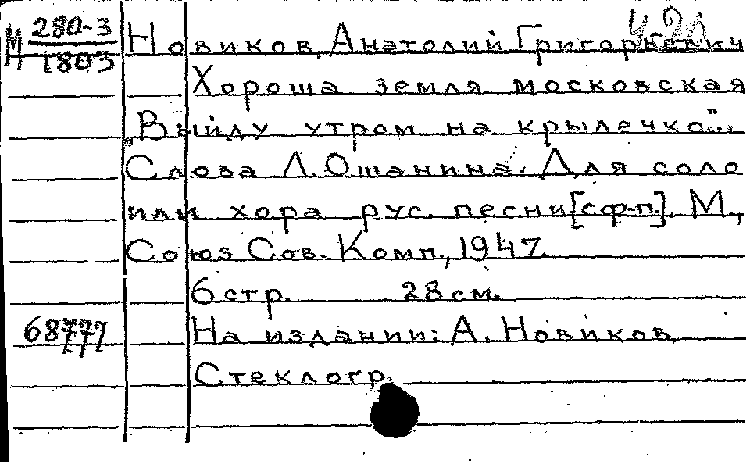 М 280-3
1803
Новиков, Анатолий Григорьевич
Хороша земля московская
„Выйду утром на крылечко"...
Слова Л. Ошанина. Для соло
или хора рус. песни [с ф-п.]. М.,
Союз Сов. Комп., 1947.
6 стр. 28 см.
68777
На издании: А. Новиков
Стеклогр.